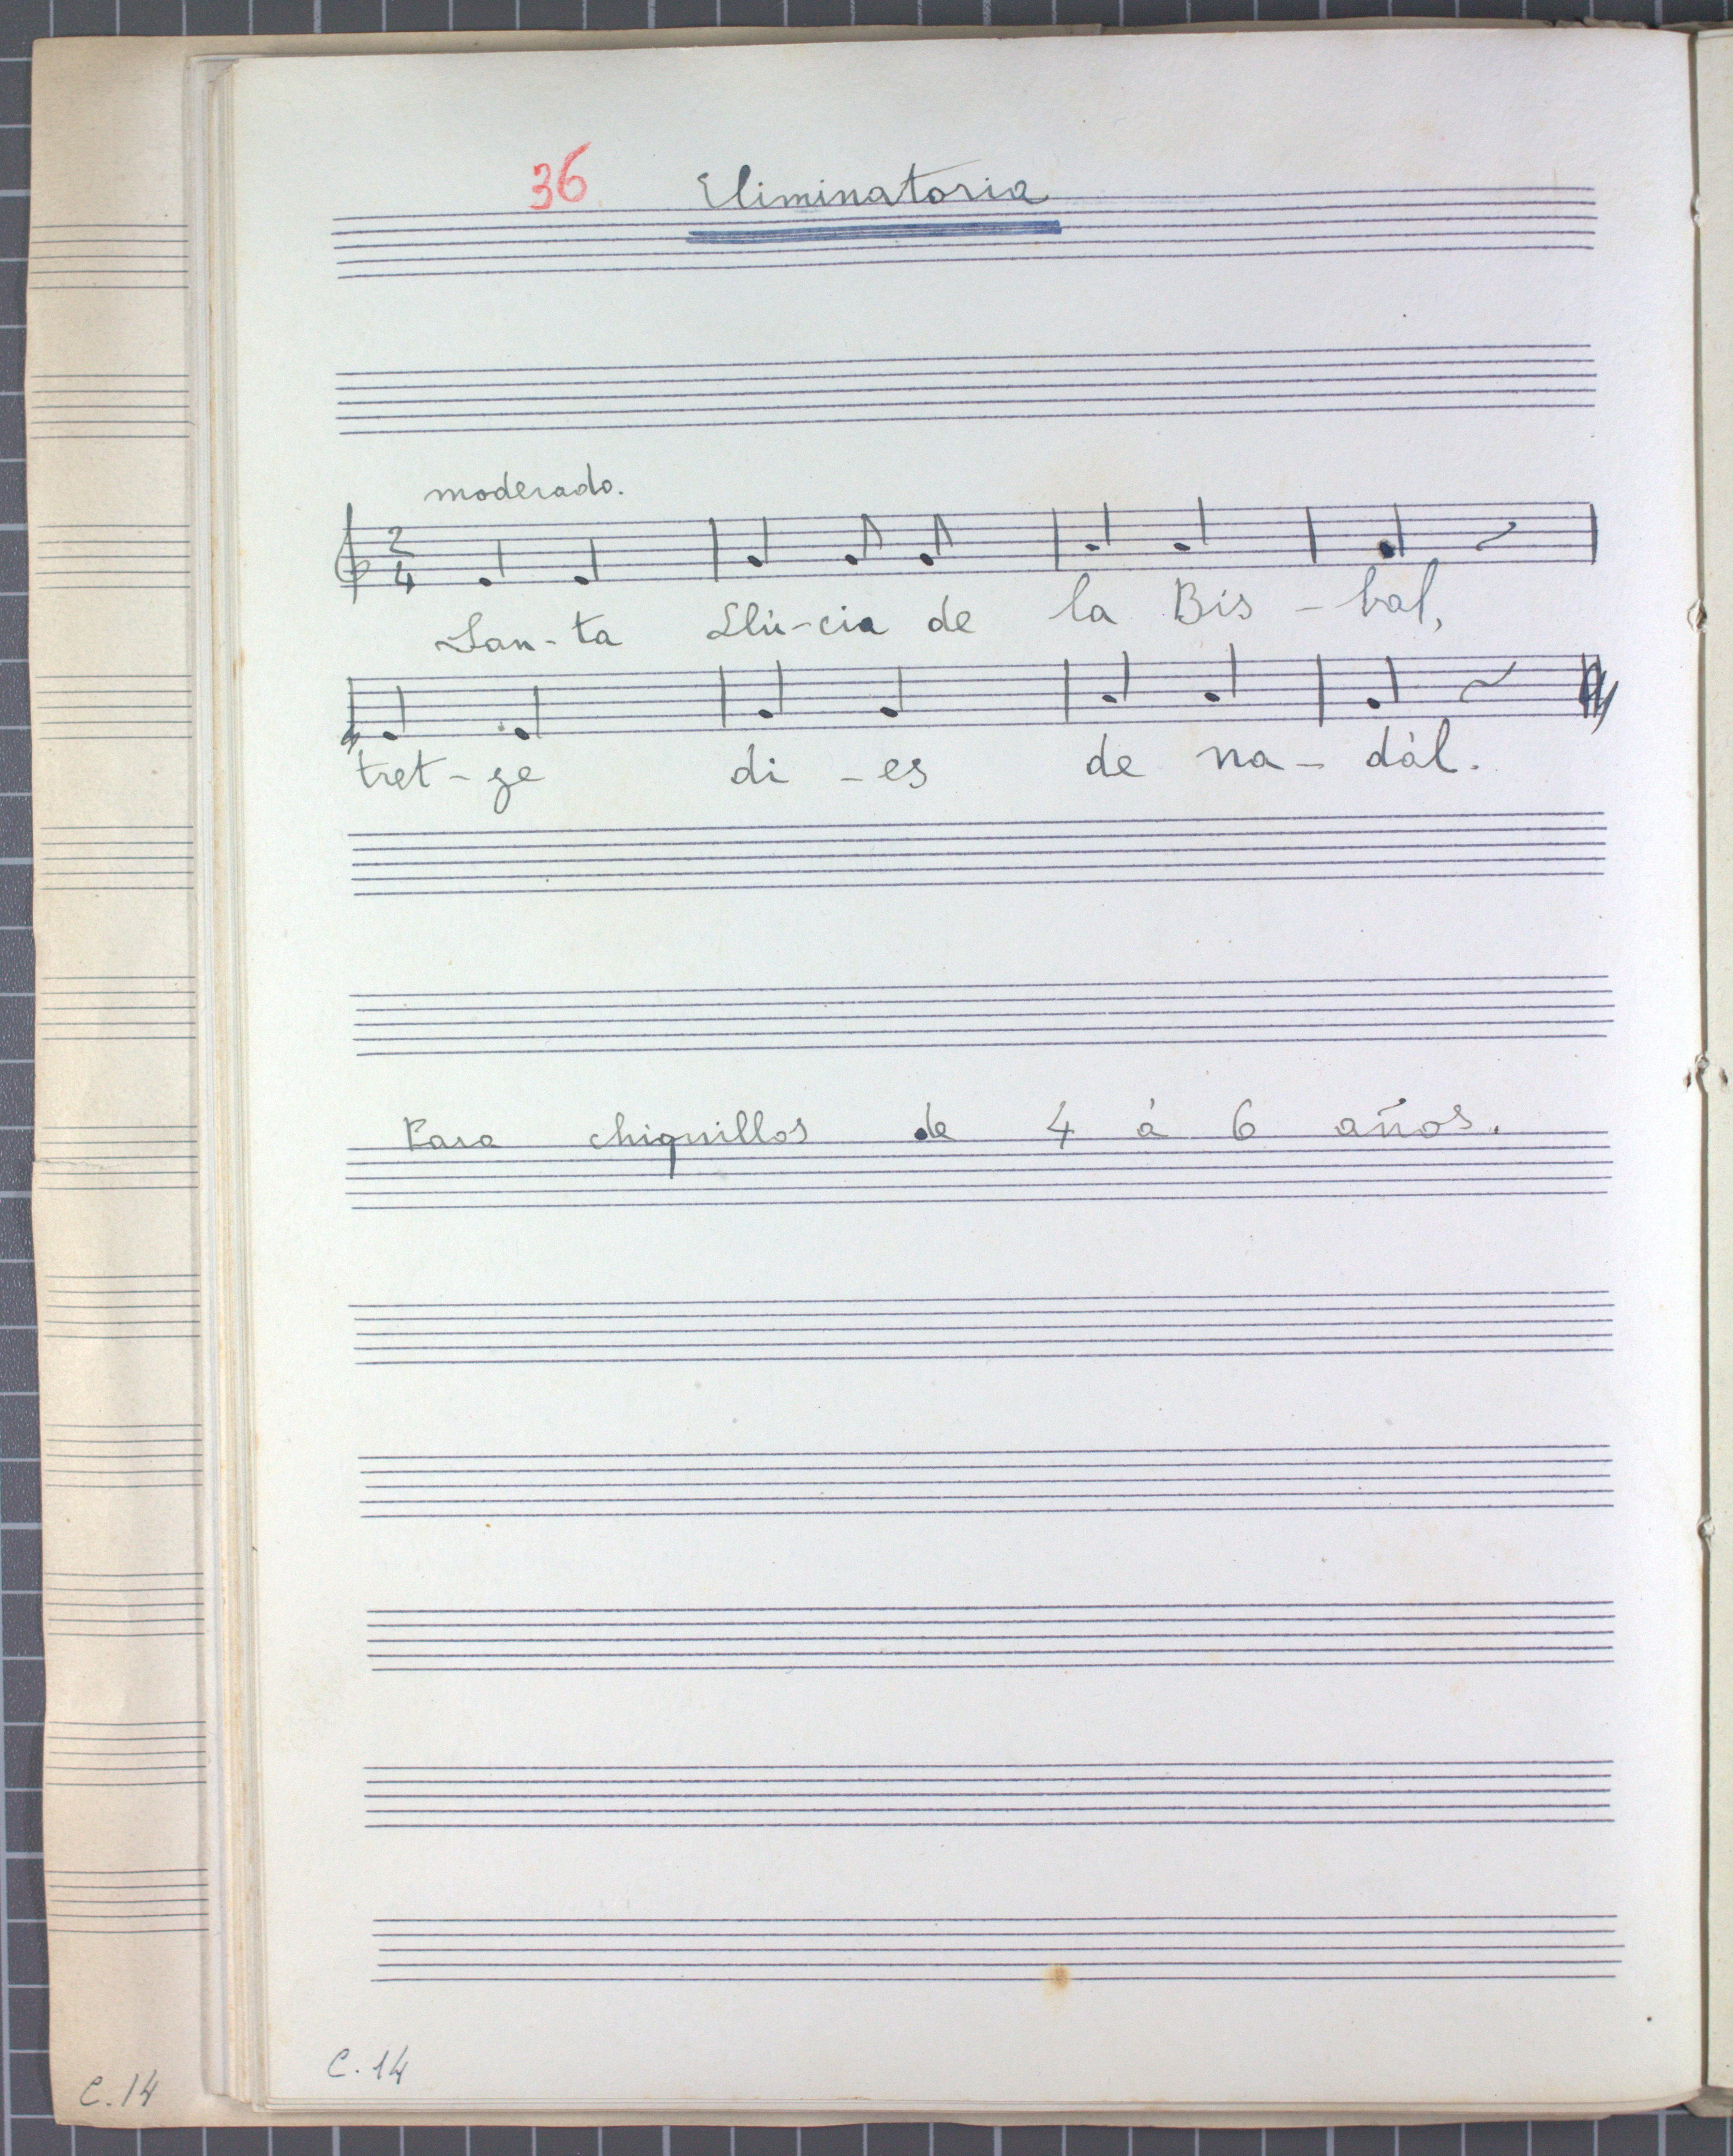 36 Eliminatoria
moderado.
2
4
San-ta Llú-cia de la Bis-bal,
tret-ze di-es de na-dàl.
Para chiquillos de 4 á 6 años.
C.14
C.14